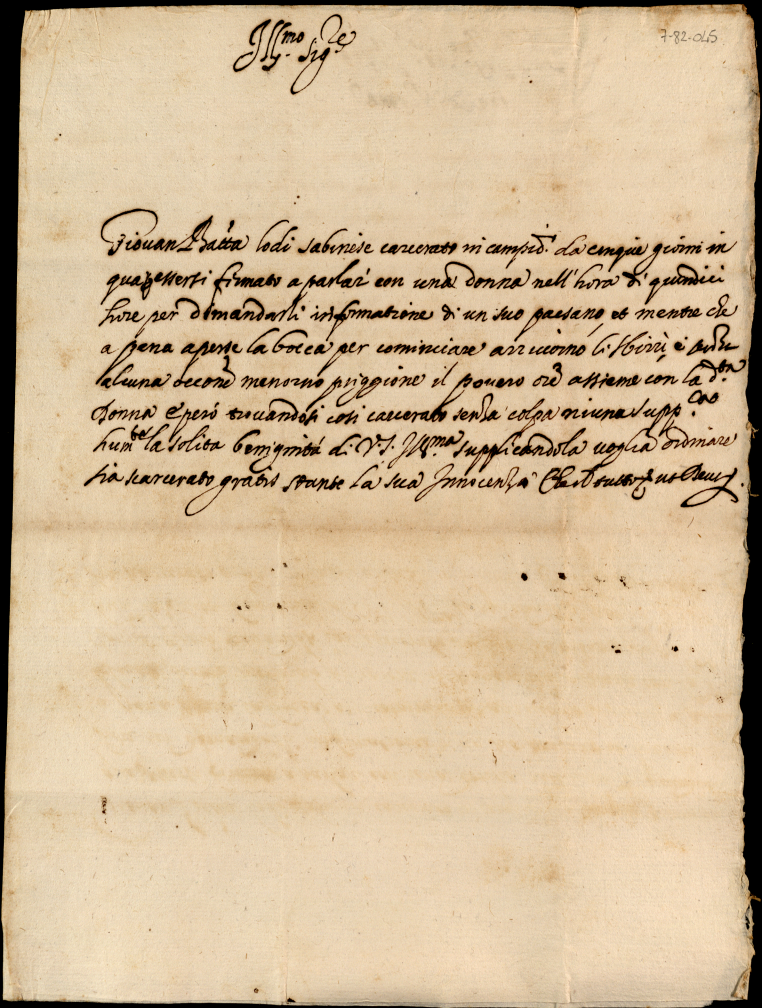 Ill.mo Sig.re
7-82-045
Giovan Batta lodi sabinese carcerato in campid. da cinque giorni in
qua p essersi firmato a parlar con una donna nell'hora di quindici
hore per dimandarli informatione di un suo paesano et mentre che
a pena aperse la bocca per cominciare arrivorno li sbirri e
alcuna occone menorno priggione il povero ore assieme con la d.ta
Donna e però trovandosi così carcerato senza colpa niuna supp.ca
hum.te la solita benignità di V.S. Ill.ma supplicandola voglia ordinare
sia scarcerato gratis stante la sua Innocenza Che il tutto ut Deus.